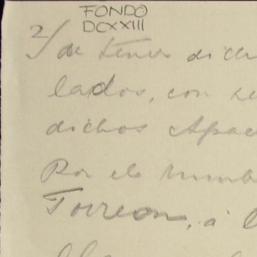 FONDO
DCXXIII
2/ de tener dich
lados, con
dichos Apac
Por el
Torreon, a l